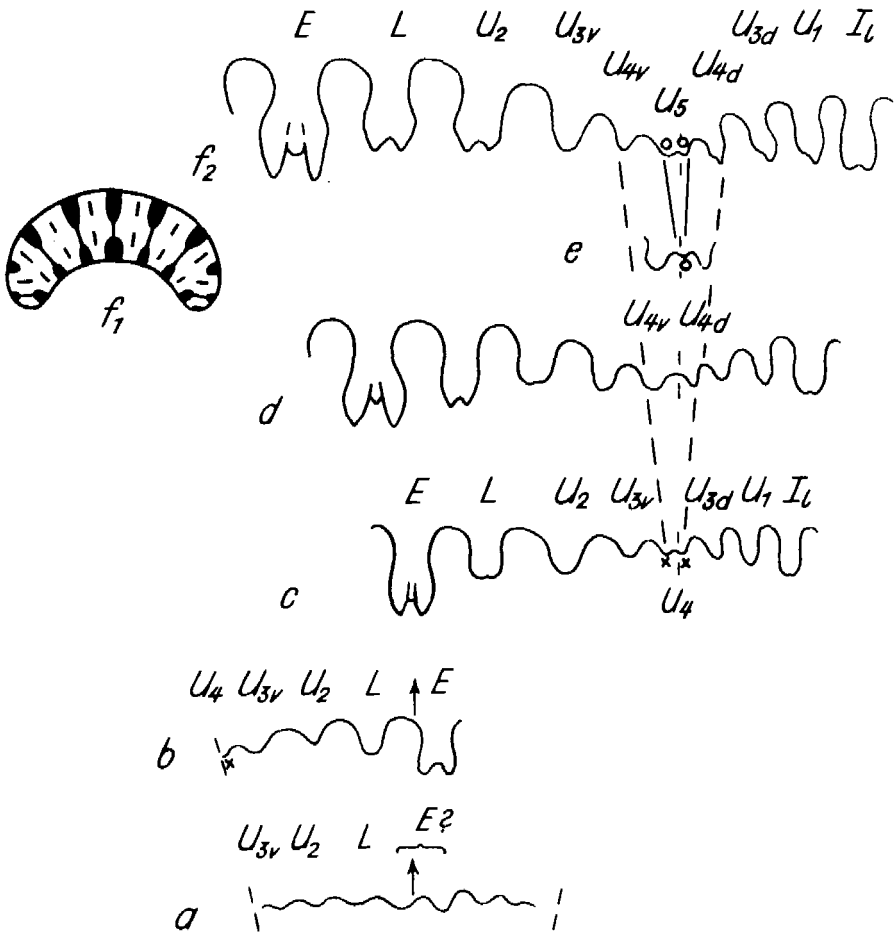 E L U₂ U₃ᵥ U₃d U₁ Iₗ
U₄ᵥ U₄d
U₅
f₂
e
f₁
U₄ᵥ U₄d
d
E L U₂ U₃ᵥ U₃d U₁ Iₗ
x x
c
U₄
U₄ U₃ᵥ U₂ L E
b
x
E?
U₃ᵥ U₂ L
a